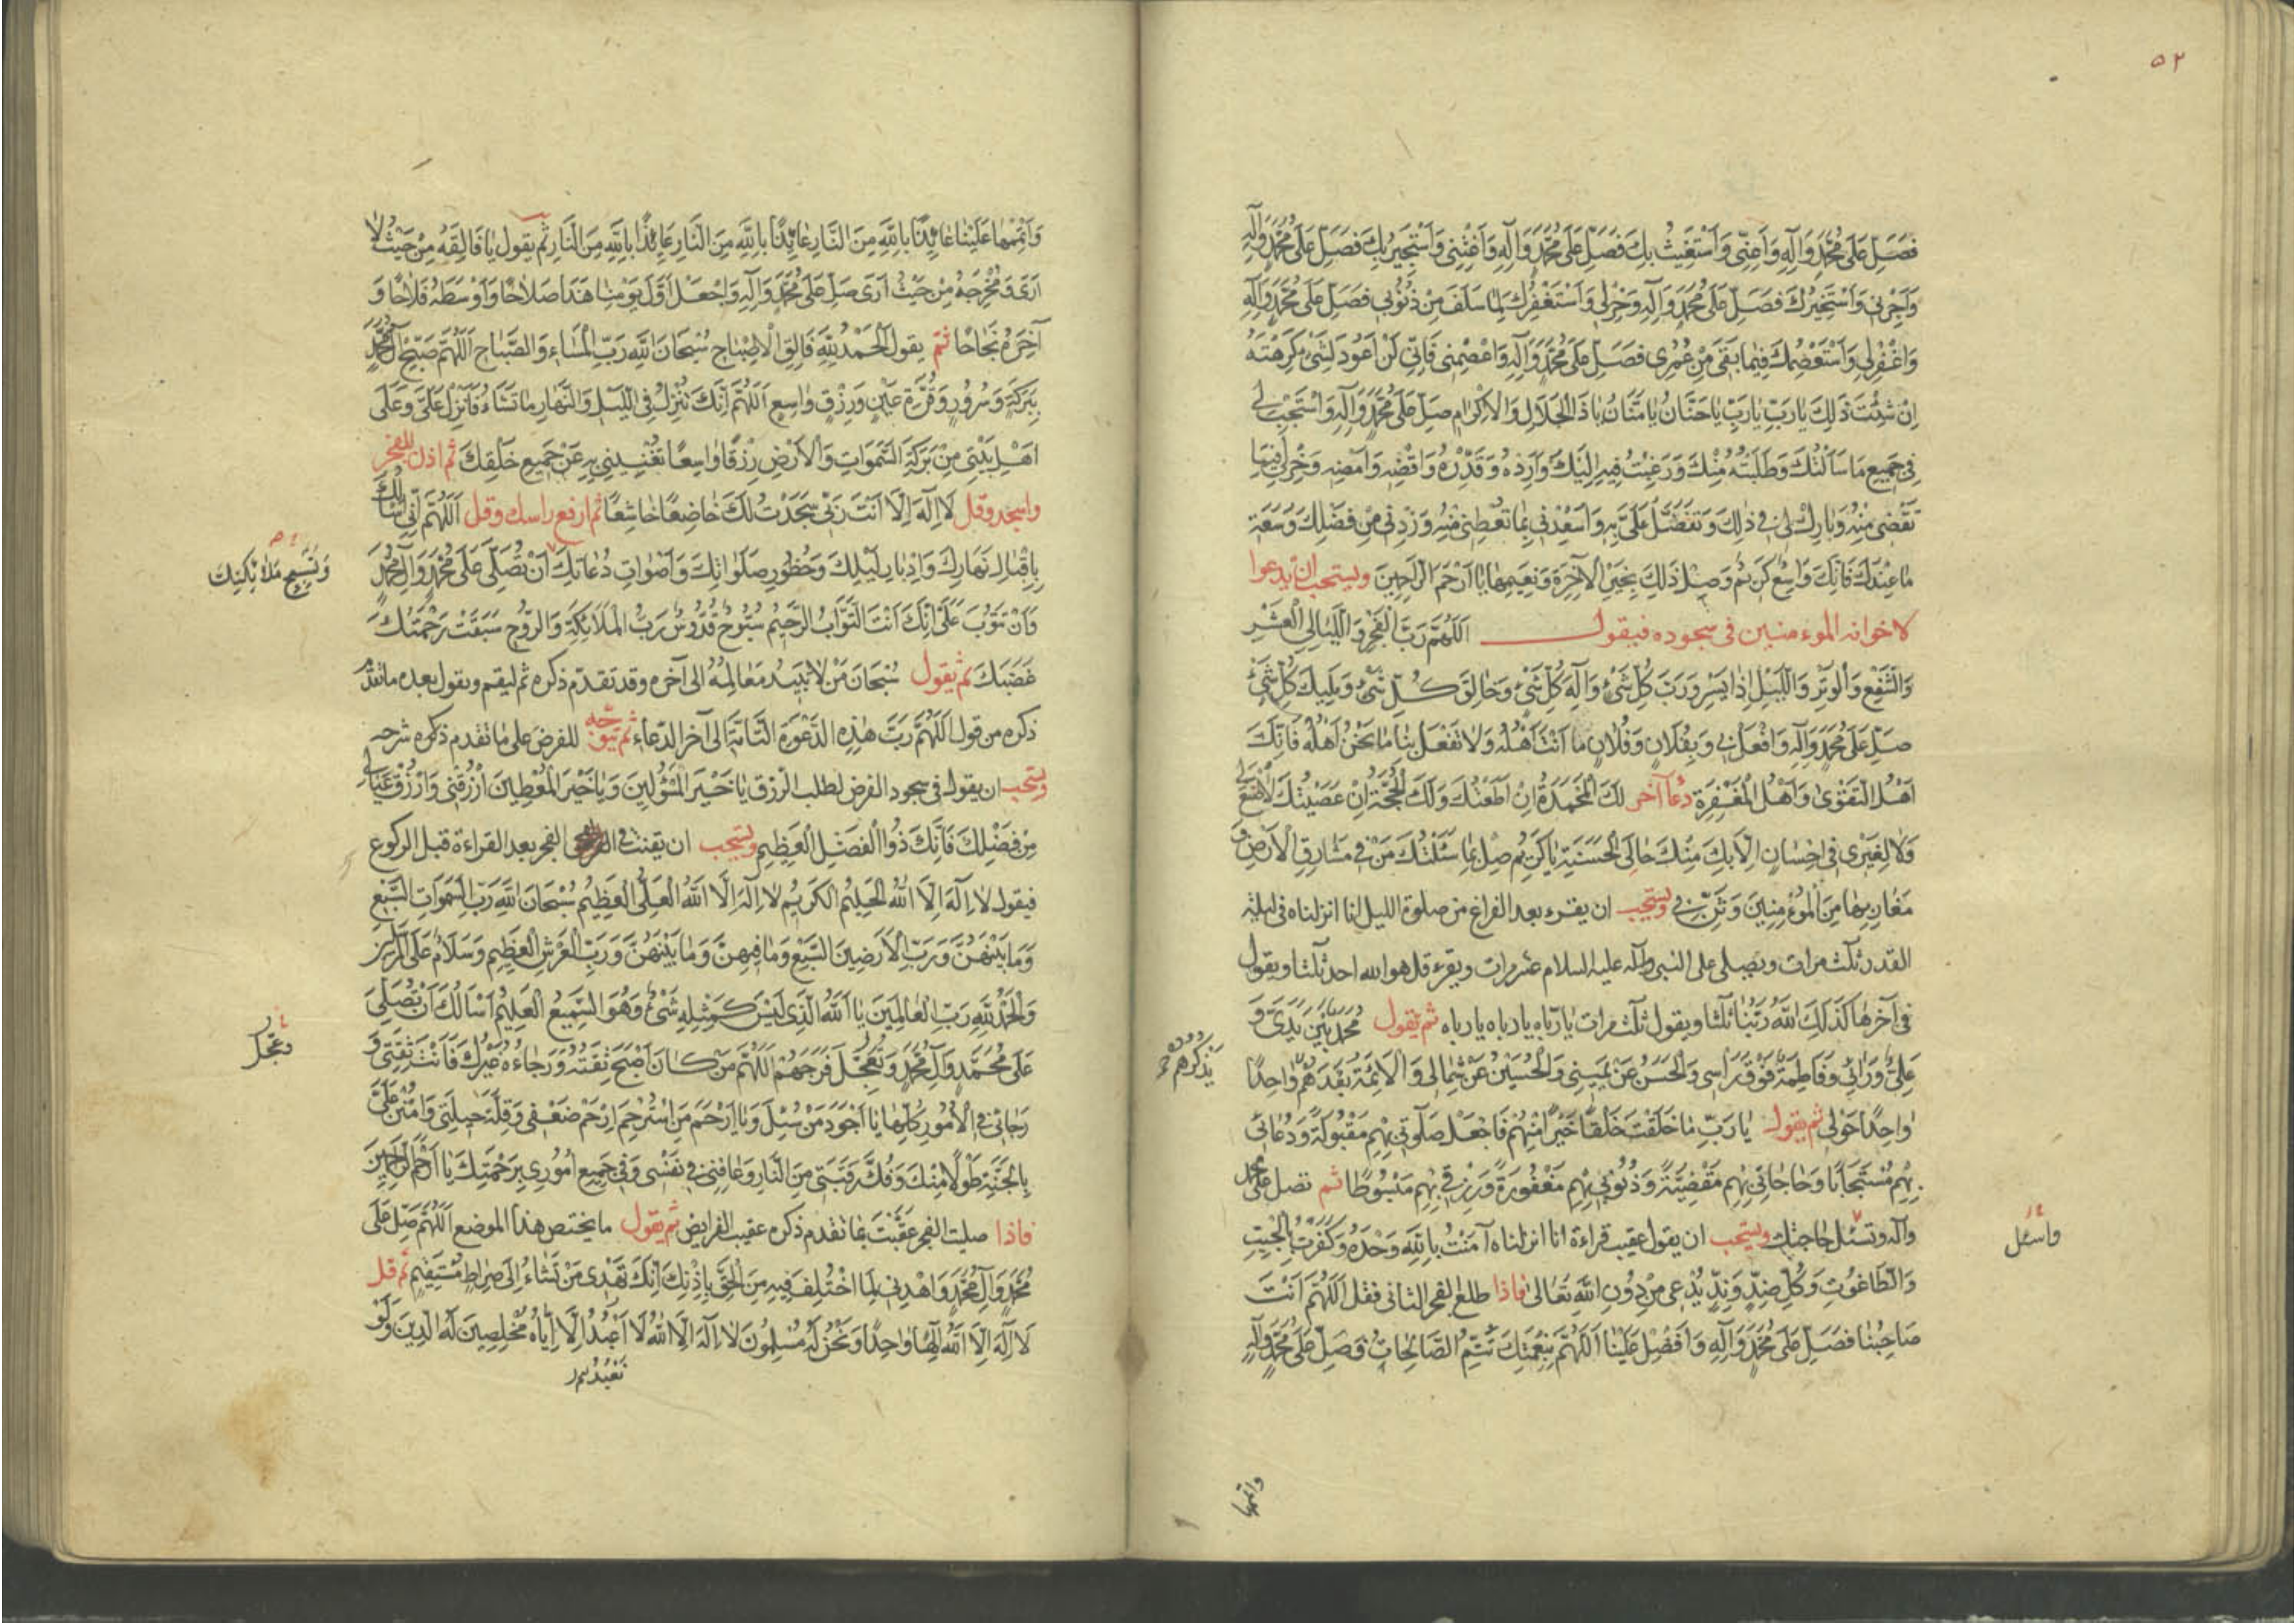 ٥٢
فَصَلِّ عَلَى مُحَمَّدٍ وَآلِهِ وَأَعِنِّي وَأَسْتَغِيثُ بِكَ فَصَلِّ عَلَى مُحَمَّدٍ وَآلِهِ وَأَغِثْنِي وَأَسْتَجِيرُ بِكَ فَصَلِّ عَلَى مُحَمَّدٍ وَآلِهِ
وَأَجِرْنِي وَأَسْتَخِيرُكَ فَصَلِّ عَلَى مُحَمَّدٍ وَآلِهِ وَخِرْ لِي وَأَسْتَغْفِرُكَ لِمَا سَلَفَ مِنْ ذُنُوبِي فَصَلِّ عَلَى مُحَمَّدٍ وَآلِهِ
وَاغْفِرْ لِي وَأَسْتَعْصِمُكَ فِيمَا بَقِيَ مِنْ عُمُرِي فَصَلِّ عَلَى مُحَمَّدٍ وَآلِهِ وَاعْصِمْنِي فَإِنِّي لَنْ أَعُودَ لِشَيْءٍ كَرِهْتَهُ
اِنْ شِئْتَ ذَلِكَ يَا رَبِّ يَا رَبِّ يَا حَنَّانُ يَا مَنَّانُ يَا ذَا الْجَلَالِ وَالْإِكْرَامِ صَلِّ عَلَى مُحَمَّدٍ وَآلِهِ وَاسْتَجِبْ لِي
فِي جَمِيعِ مَا سَأَلْتُكَ وَطَلَبْتُهُ مِنْكَ وَرَغِبْتُ فِيهِ إِلَيْكَ وَأَرِدْهُ وَقَدِّرْهُ وَاقْضِهِ وَأَمْضِهِ وَخِرْ لِي فِيمَا
تَقْضِي مِنْهُ وَبَارِكْ لِي فِي ذَلِكَ وَتَفَضَّلْ عَلَيَّ بِهِ وَأَسْعِدْنِي بِمَا تُعْطِينِي مِنْهُ وَزِدْنِي مِنْ فَضْلِكَ وَسَعَةِ
مَا عِنْدَكَ فَإِنَّكَ وَاسِعٌ كَرِيمٌ وَصِلْ ذَلِكَ بِخَيْرِ الْآخِرَةِ وَنَعِيمِهَا يَا أَرْحَمَ الرَّاحِمِينَ ويستحب ان يدعوا
لاخوانه المؤمنين في سجوده فيقول اَللّهُمَّ رَبَّ الْفَجْرِ وَاللَّيَالِي الْعَشْرِ
وَالشَّفْعِ وَالْوَتْرِ وَاللَّيْلِ إِذَا يَسْرِ وَرَبَّ كُلِّ شَيْءٍ وَآلِهَ كُلِّ شَيْءٍ وَخَالِقَ كُلِّ شَيْءٍ وَمَلِيكَ كُلِّ شَيْءٍ
صَلِّ عَلَى مُحَمَّدٍ وَآلِهِ وَافْعَلْ بِي وَبِفُلَانٍ وَفُلَانٍ مَا أَنْتَ أَهْلُهُ وَلَا تَفْعَلْ بِنَا مَا نَحْنُ أَهْلُهُ فَإِنَّكَ
اَهْلُ التَّقْوَى وَأَهْلُ الْمَغْفِرَةِ دعاء آخر لَكَ الْمَحْمَدَةُ اِنْ أَطَعْتُكَ وَلَكَ الْحُجَّةُ اِنْ عَصَيْتُكَ لَا صُنْعَ لِي
وَلَا لِغَيْرِي فِي إِحْسَانٍ إِلَّا بِكَ مِنْكَ حَالِيَ الْحَسَنَةِ يَا كَرِيمُ صِلْ بِمَا سَئَلْتُكَ مَنْ فِي مَشَارِقِ الْأَرْضِ وَ
مَغَارِبِهَا مِنَ الْمُؤْمِنِينَ وَثَنِّ بِي ويستحب ان يقرء بعد الفراغ من صلوة الليل انا انزلناه في ليلة
القدر ثلث مرات ويصلي على النبي وآله عليه السلام عشر مرات ويقرء قل هو الله احد ثلثا ويقول
في آخرها كَذَلِكَ اللهُ رَبُّنَا ثلثا ويقول ثلث مرات يا رباه يا رباه يا رباه ثم يقول مُحَمَّدٌ بَيْنَ يَدَيَّ وَ
عَلِيٌّ وَرَائِي وَفَاطِمَةُ فَوْقَ رَأْسِي وَالْحَسَنُ عَنْ يَمِينِي وَالْحُسَيْنُ عَنْ شِمَالِي وَالْأَئِمَّةُ بَعْدَهُمْ وَاحِدًا
يذكرهم
وَاحِدًا حَوْلِي ثم يقول يَا رَبِّ مَا خَلَقْتَ خَلْقًا خَيْرًا مِنْهُمْ فَاجْعَلْ صَلَوتِي بِهِمْ مَقْبُولَةً وَدُعَائِي
بِهِمْ مُسْتَجَابًا وَحَاجَاتِي بِهِمْ مَقْضِيَّةً وَذُنُوبِي بِهِمْ مَغْفُورَةً وَرِزْقِي بِهِمْ مَبْسُوطًا ثم تصل على محمد
وآله وتسئل حاجتك ويستحب ان يقول عقيب قراءة انا انزلناه آمَنْتُ بِاللهِ وَحْدَهُ وَكَفَرْتُ بِالْجِبْتِ
واسئل
وَالطَّاغُوتِ وَكُلِّ ضِدٍّ وَنِدٍّ يُدْعَى مِنْ دُونِ اللهِ تَعَالَى فاذا طلع الفجر الثاني فقل اَللّهُمَّ أَنْتَ
صَاحِبُنَا فَصَلِّ عَلَى مُحَمَّدٍ وَآلِهِ وَأَفْضِلْ عَلَيْنَا اَللّهُمَّ بِنِعْمَتِكَ تَتِمُّ الصَّالِحَاتُ فَصَلِّ عَلَى مُحَمَّدٍ وَآلِهِ
واتمها
وَأَتْمِمْهَا عَلَيْنَا عَائِذًا بِاللهِ مِنَ النَّارِ عَائِذًا بِاللهِ مِنَ النَّارِ عَائِذًا بِاللهِ مِنَ النَّارِ ثم يقول يَا فَالِقَهُ مِنْ حَيْثُ لَا
اَرَى وَمُخْرِجَهُ مِنْ حَيْثُ أَرَى صَلِّ عَلَى مُحَمَّدٍ وَآلِهِ وَاجْعَلْ أَوَّلَ يَوْمِنَا هَذَا صَلَاحًا وَأَوْسَطَهُ فَلَاحًا وَ
آخِرَهُ نَجَاحًا ثم يقول اَلْحَمْدُ لِلَّهِ فَالِقِ الْإِصْبَاحِ سُبْحَانَ اللهِ رَبِّ الْمَسَاءِ وَالصَّبَاحِ اَللّهُمَّ صَبِّحْ آلَ مُحَمَّدٍ
بِبَرَكَةٍ وَسُرُورٍ وَقُرَّةِ عَيْنٍ وَرِزْقٍ وَاسِعٍ اَللّهُمَّ إِنَّكَ تُنْزِلُ فِي اللَّيْلِ وَالنَّهَارِ مَا تَشَاءُ فَأَنْزِلْ عَلَيَّ وَعَلَى
اَهْلِ بَيْتِي مِنْ بَرَكَةِ السَّمَوَاتِ وَالْأَرْضِ رِزْقًا وَاسِعًا تُغْنِينِي بِهِ عَنْ جَمِيعِ خَلْقِكَ ثم اذن للفجر
واسجد وقل لَا إِلَهَ إِلَّا أَنْتَ رَبِّي سَجَدْتُ لَكَ خَاضِعًا خَاشِعًا ثم ارفع راسك وقل اَللّهُمَّ إِنِّي أَسْأَلُكَ
بِإِقْبَالِ نَهَارِكَ وَإِدْبَارِ لَيْلِكَ وَحُضُورِ صَلَوَاتِكَ وَأَصْوَاتِ دُعَاتِكَ أَنْ تُصَلِّيَ عَلَى مُحَمَّدٍ وَآلِ مُحَمَّدٍ
وَتَسْبِيحِ مَلَائِكَتِكَ
وَأَنْ تَتُوبَ عَلَيَّ إِنَّكَ أَنْتَ التَّوَّابُ الرَّحِيمُ سُبُّوحٌ قُدُّوسٌ رَبُّ الْمَلَائِكَةِ وَالرُّوحِ سَبَقَتْ رَحْمَتُكَ
غَضَبَكَ ثم يقول سُبْحَانَ مَنْ لَا تَبِيدُ مَعَالِمُهُ الى آخره وقد تقدم ذكره ثم ليقم ويقول بعده ما تقدم
ذكره من قول اَللّهُمَّ رَبَّ هَذِهِ الدَّعْوَةِ التَّامَّةِ الى آخر الدعاء ثم يتوجه للفرض على ما تقدم ذكره شرحه
ويستحب ان يقول في سجود الفرض لطلب الرزق يَا خَيْرَ الْمَسْؤُلِينَ وَيَا خَيْرَ الْمُعْطِينَ اُرْزُقْنِي وَارْزُقْ عِيَالِي
مِنْ فَضْلِكَ فَإِنَّكَ ذُوا الْفَضْلِ الْعَظِيمِ ويستحب ان يقنت في الفجر بعد القراءة قبل الركوع
فيقول لَا إِلَهَ إِلَّا اللهُ الْحَلِيمُ الْكَرِيمُ لَا إِلَهَ إِلَّا اللهُ الْعَلِيُّ الْعَظِيمُ سُبْحَانَ اللهِ رَبِّ السَّمَوَاتِ السَّبْعِ
وَمَا بَيْنَهُنَّ وَرَبِّ الْأَرَضِينَ السَّبْعِ وَمَا فِيهِنَّ وَمَا بَيْنَهُنَّ وَرَبِّ الْعَرْشِ الْعَظِيمِ وَسَلَامٌ عَلَى الْمُرْسَلِينَ
وَالْحَمْدُ لِلَّهِ رَبِّ الْعَالَمِينَ يَا اَللهُ الَّذِي لَيْسَ كَمِثْلِهِ شَيْءٌ وَهُوَ السَّمِيعُ الْعَلِيمُ أَسْأَلُكَ أَنْ تُصَلِّيَ
عَلَى مُحَمَّدٍ وَآلِ مُحَمَّدٍ وَتُعَجِّلَ فَرَجَهُمْ اَللّهُمَّ مَنْ كَانَ أَصْبَحَ ثِقَتُهُ وَرَجَاءُهُ غَيْرَكَ فَأَنْتَ ثِقَتِي وَ
وعجل
رَجَائِي فِي الْأُمُورِ كُلِّهَا يَا أَجْوَدَ مَنْ سُئِلَ وَيَا أَرْحَمَ مَنِ اسْتُرْحِمَ اِرْحَمْ ضَعْفِي وَقِلَّةَ حِيلَتِي وَامْنُنْ عَلَيَّ
بِالْجَنَّةِ طَوْلًا مِنْكَ وَفُكَّ رَقَبَتِي مِنَ النَّارِ وَعَافِنِي فِي نَفْسِي وَفِي جَمِيعِ أُمُورِي بِرَحْمَتِكَ يَا أَرْحَمَ الرَّاحِمِينَ
فاذا صليت الفجر عقبت بما تقدم ذكره عقيب الفرايض ثم يقول ما يختص هذا الموضع اَللّهُمَّ صَلِّ عَلَى
مُحَمَّدٍ وَآلِ مُحَمَّدٍ وَاهْدِنِي لِمَا اخْتُلِفَ فِيهِ مِنَ الْحَقِّ بِإِذْنِكَ إِنَّكَ تَهْدِي مَنْ تَشَاءُ إِلَى صِرَاطٍ مُسْتَقِيمٍ ثم قل
لَا إِلَهَ إِلَّا اللهُ إِلَهًا وَاحِدًا وَنَحْنُ لَهُ مُسْلِمُونَ لَا إِلَهَ إِلَّا اللهُ لَا أَعْبُدُ إِلَّا إِيَّاهُ مُخْلِصِينَ لَهُ الدِّينَ وَلَوْ
نَعْبُدُ